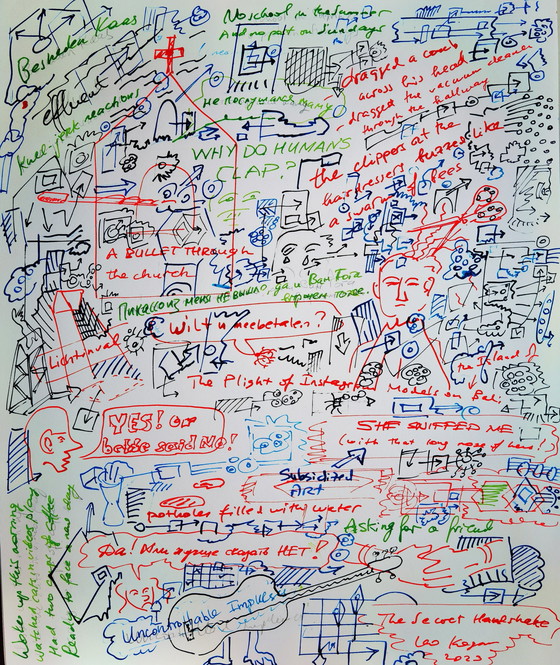 Bescheiden Kaas
No school in the summer
And no part on Sundays
effluent
Knee-jerk reactions
не послушалась маму
WHY DO HUMANS
CLAP?
dragged a comb
across his head
dragged the vacuum cleaner
through the hallway
the clippers at the
hairdressers buzzed like
a swarm of bees
A BULLET THROUGH
the church
Пикассо из меня не вышло, да и Ван Гога
тоже.
Lichtinval
Wilt u meebetalen?
The Plight of Instagram Models on Bali,
the Island
YES! Or
better said NO!
SHE SNIFFED ME
(with that long nose of hers!)
Subsidized
Art
potholes filled with water
Asking for a friend
Woke up this morning
Watched caterpillars play
Had two cups of coffee
Ready to face the day
Да! Или лучше сказать НЕТ!
Uncontrollable Impulses
The Secret Handshake
Leo Kogan
2023